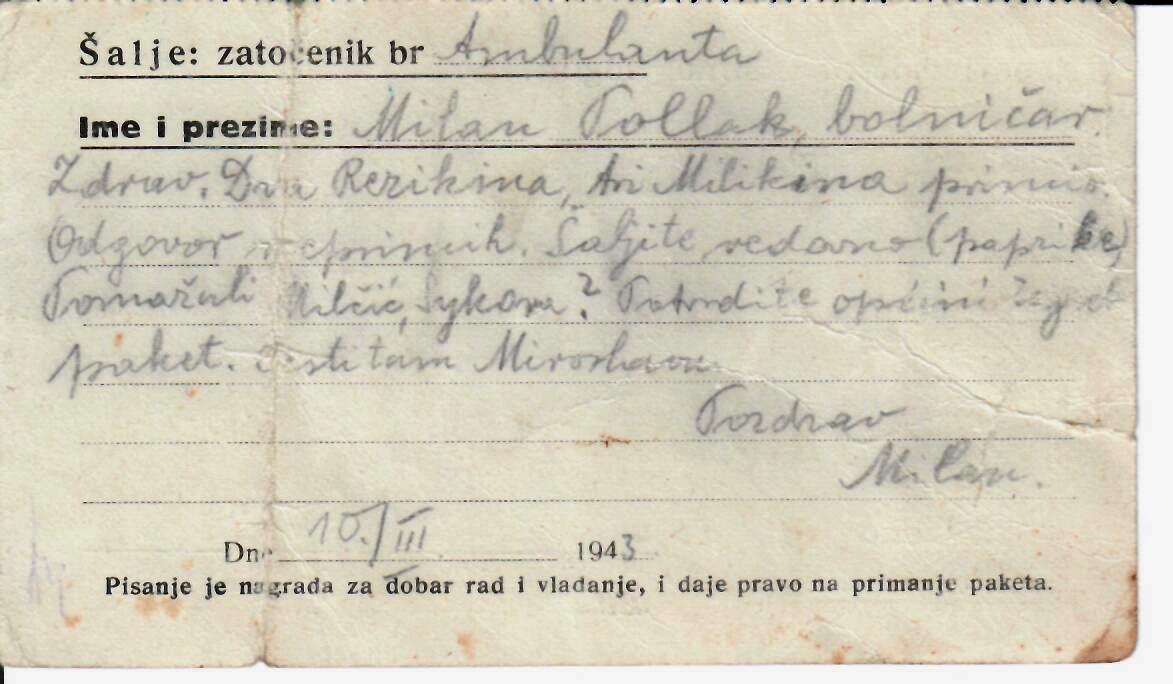 Šalje: zatočenik br Ambulanta
Ime i prezime: Milan Pollak, bolničar.
Zdrav. Dva Rezikina, tri Milikina primio.
Odgovor neprimih. Šaljite redovno (paprike)
Tomažali Milčić, Sykora? Potvrdite općini Zagreb
paket. Čestitam Miroslavu
Pozdrav
Milan.
Dne 10./III. 1943
Pisanje je nagrada za dobar rad i vladanje, i daje pravo na primanje paketa.